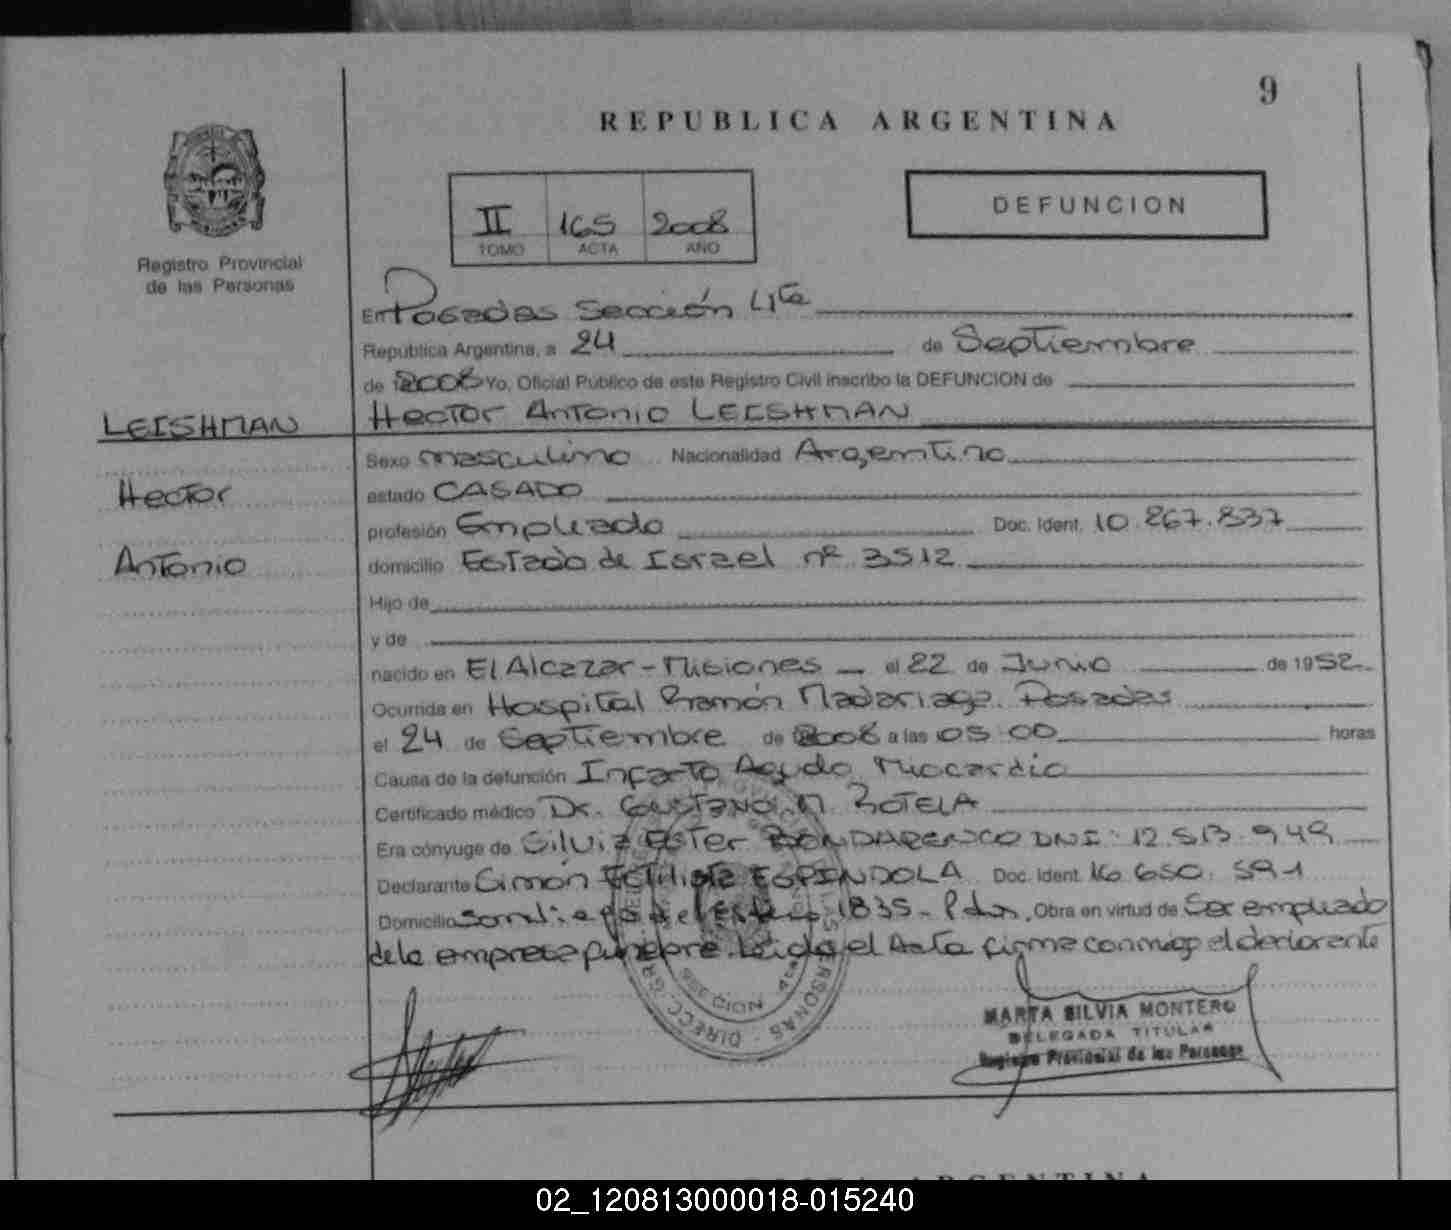 9
REPUBLICA ARGENTINA
II 165 2008
TOMO ACTA AÑO
DEFUNCION
Registro Provincial
de las Personas
En Posadas Sección 4ta
República Argentina, a 24 de Septiembre
de 2008 Yo, Oficial Público de este Registro Civil inscribo la DEFUNCION de
Hector Antonio LEISHMAN
LEISHMAN
Hector
Antonio
Sexo masculino Nacionalidad Argentino
estado CASADO
profesión Empleado Doc. Ident. 10.267.837
domicilio Estado de Israel nº 3512
Hijo de
y de
nacido en El Alcazar - Misiones el 22 de Junio de 1952
Ocurrida en Hospital Ramón Madariaga. Posadas
el 24 de Septiembre de 2008 a las 05:00 horas
Causa de la defunción Infarto Agudo Miocardio
Certificado médico Dr. Gustavo M. BOTELA
Era cónyuge de Silvia Ester BONDARENCO DNI: 12.513.949
Declarante Simón ESPINDOLA Doc. Ident. 16.650.591
Domicilio 1835 - Pdas. Obra en virtud de Ser empleado
de la empresa funebre. Leida el Acta firma conmigo el declarante
SECCION 4ta
MARTA SILVIA MONTERO
DELEGADA TITULAR
Registro Provincial de las Personas
ARGENTINA
02_120813000018-015240